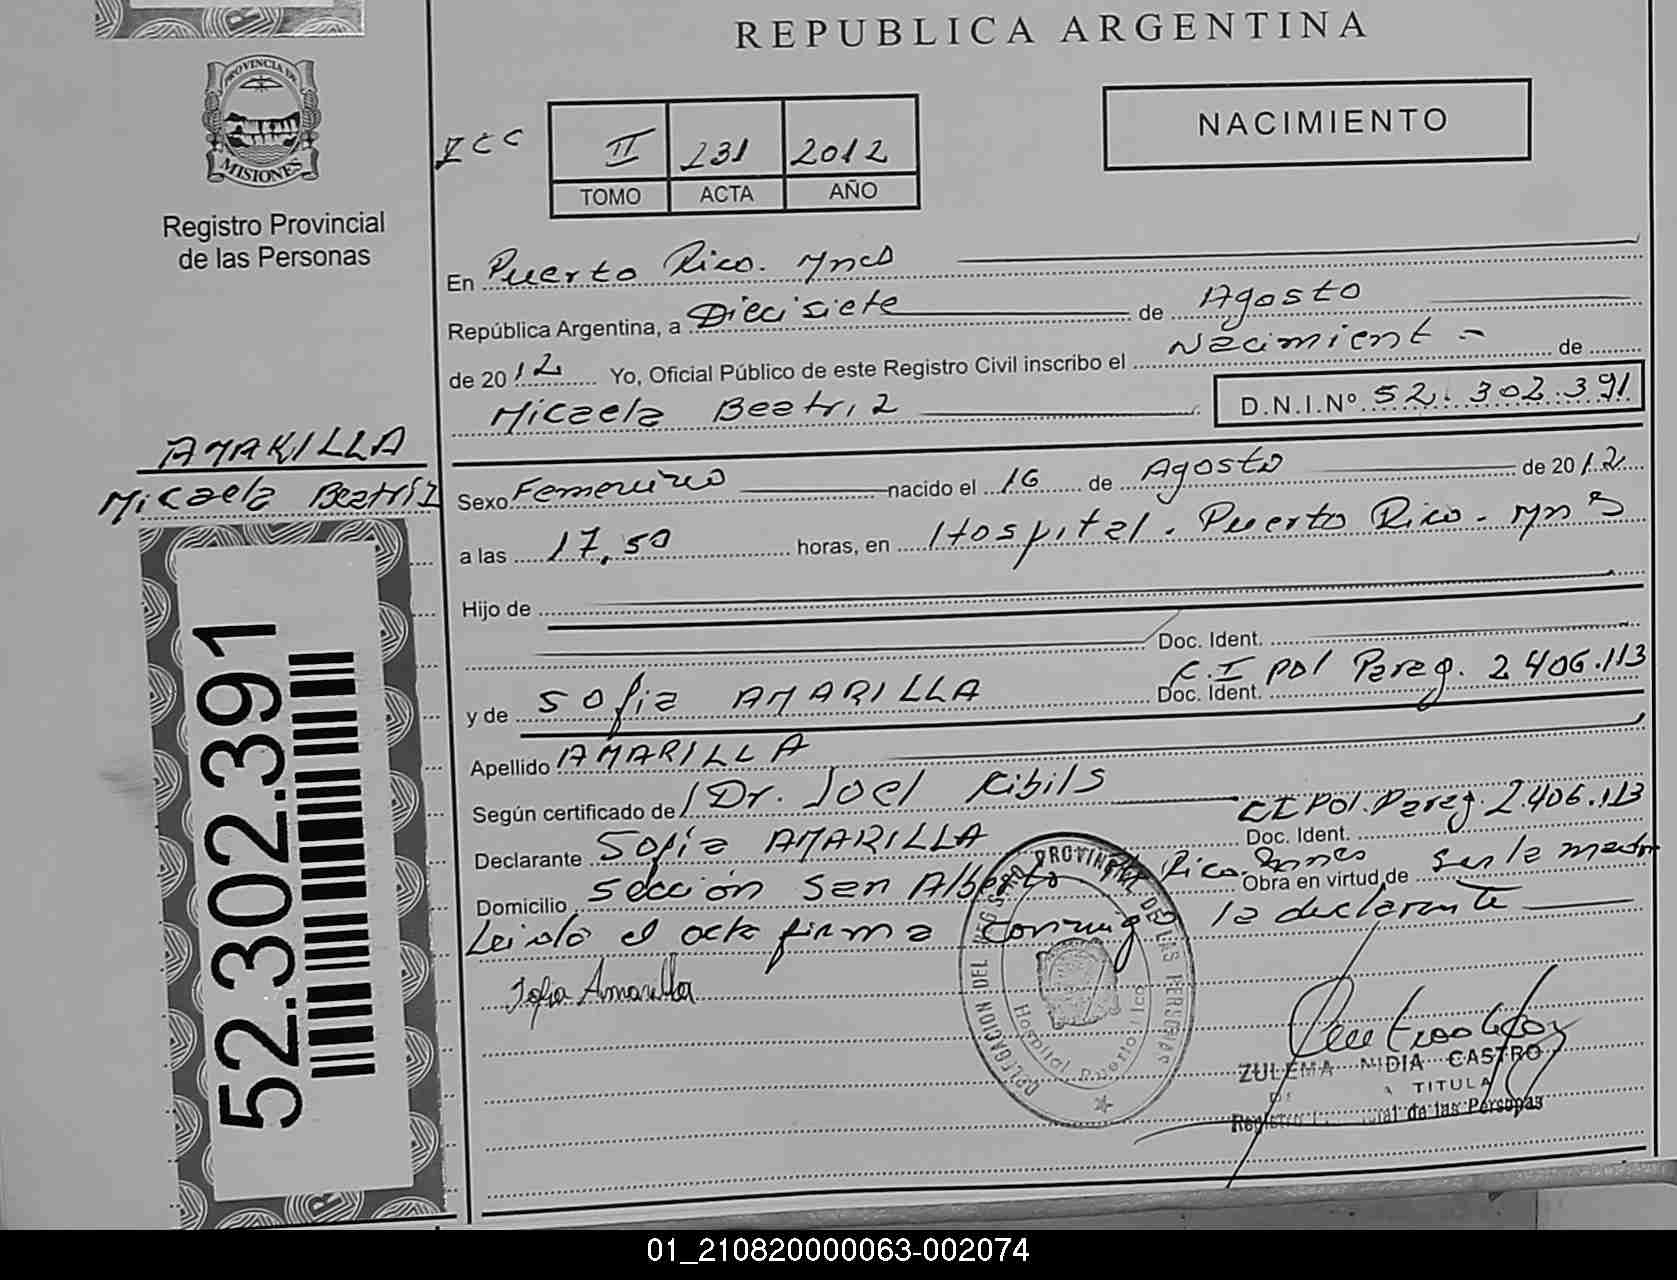 REPUBLICA ARGENTINA
PROVINCIA DE
MISIONES
Registro Provincial
de las Personas
II 231 2012
TOMO ACTA AÑO
NACIMIENTO
En Puerto Rico. Mnes
República Argentina, a Diecisiete de Agosto
de 2012 Yo, Oficial Público de este Registro Civil inscribo el Nacimiento de
Micaela Beatriz D.N.I.Nº 52.302.391
AMARILLA
Micaela Beatriz
Sexo Femenino nacido el 16 de Agosto de 2012
a las 17,50 horas, en Hospital. Puerto Rico. Mnes
Hijo de
Doc. Ident.
y de Sofia AMARILLA Doc. Ident. C.I Pol Parag. 2406.113
Apellido AMARILLA
Según certificado de Dr. Joel Ribils
Declarante Sofia AMARILLA Doc. Ident. CI Pol. Parag 2.406.113
Domicilio Sección San Alberto Rico. Mnes Obra en virtud de Ser la madre
Leida el acta firma conmigo la declarante
Sofia Amarilla
DELEGACION DEL REGISTRO PROVINCIAL DE LAS PERSONAS
Hospital Puerto Rico
ZULEMA NIDIA CASTRO
TITULAR
de las Personas
52.302.391
01_210820000063-002074